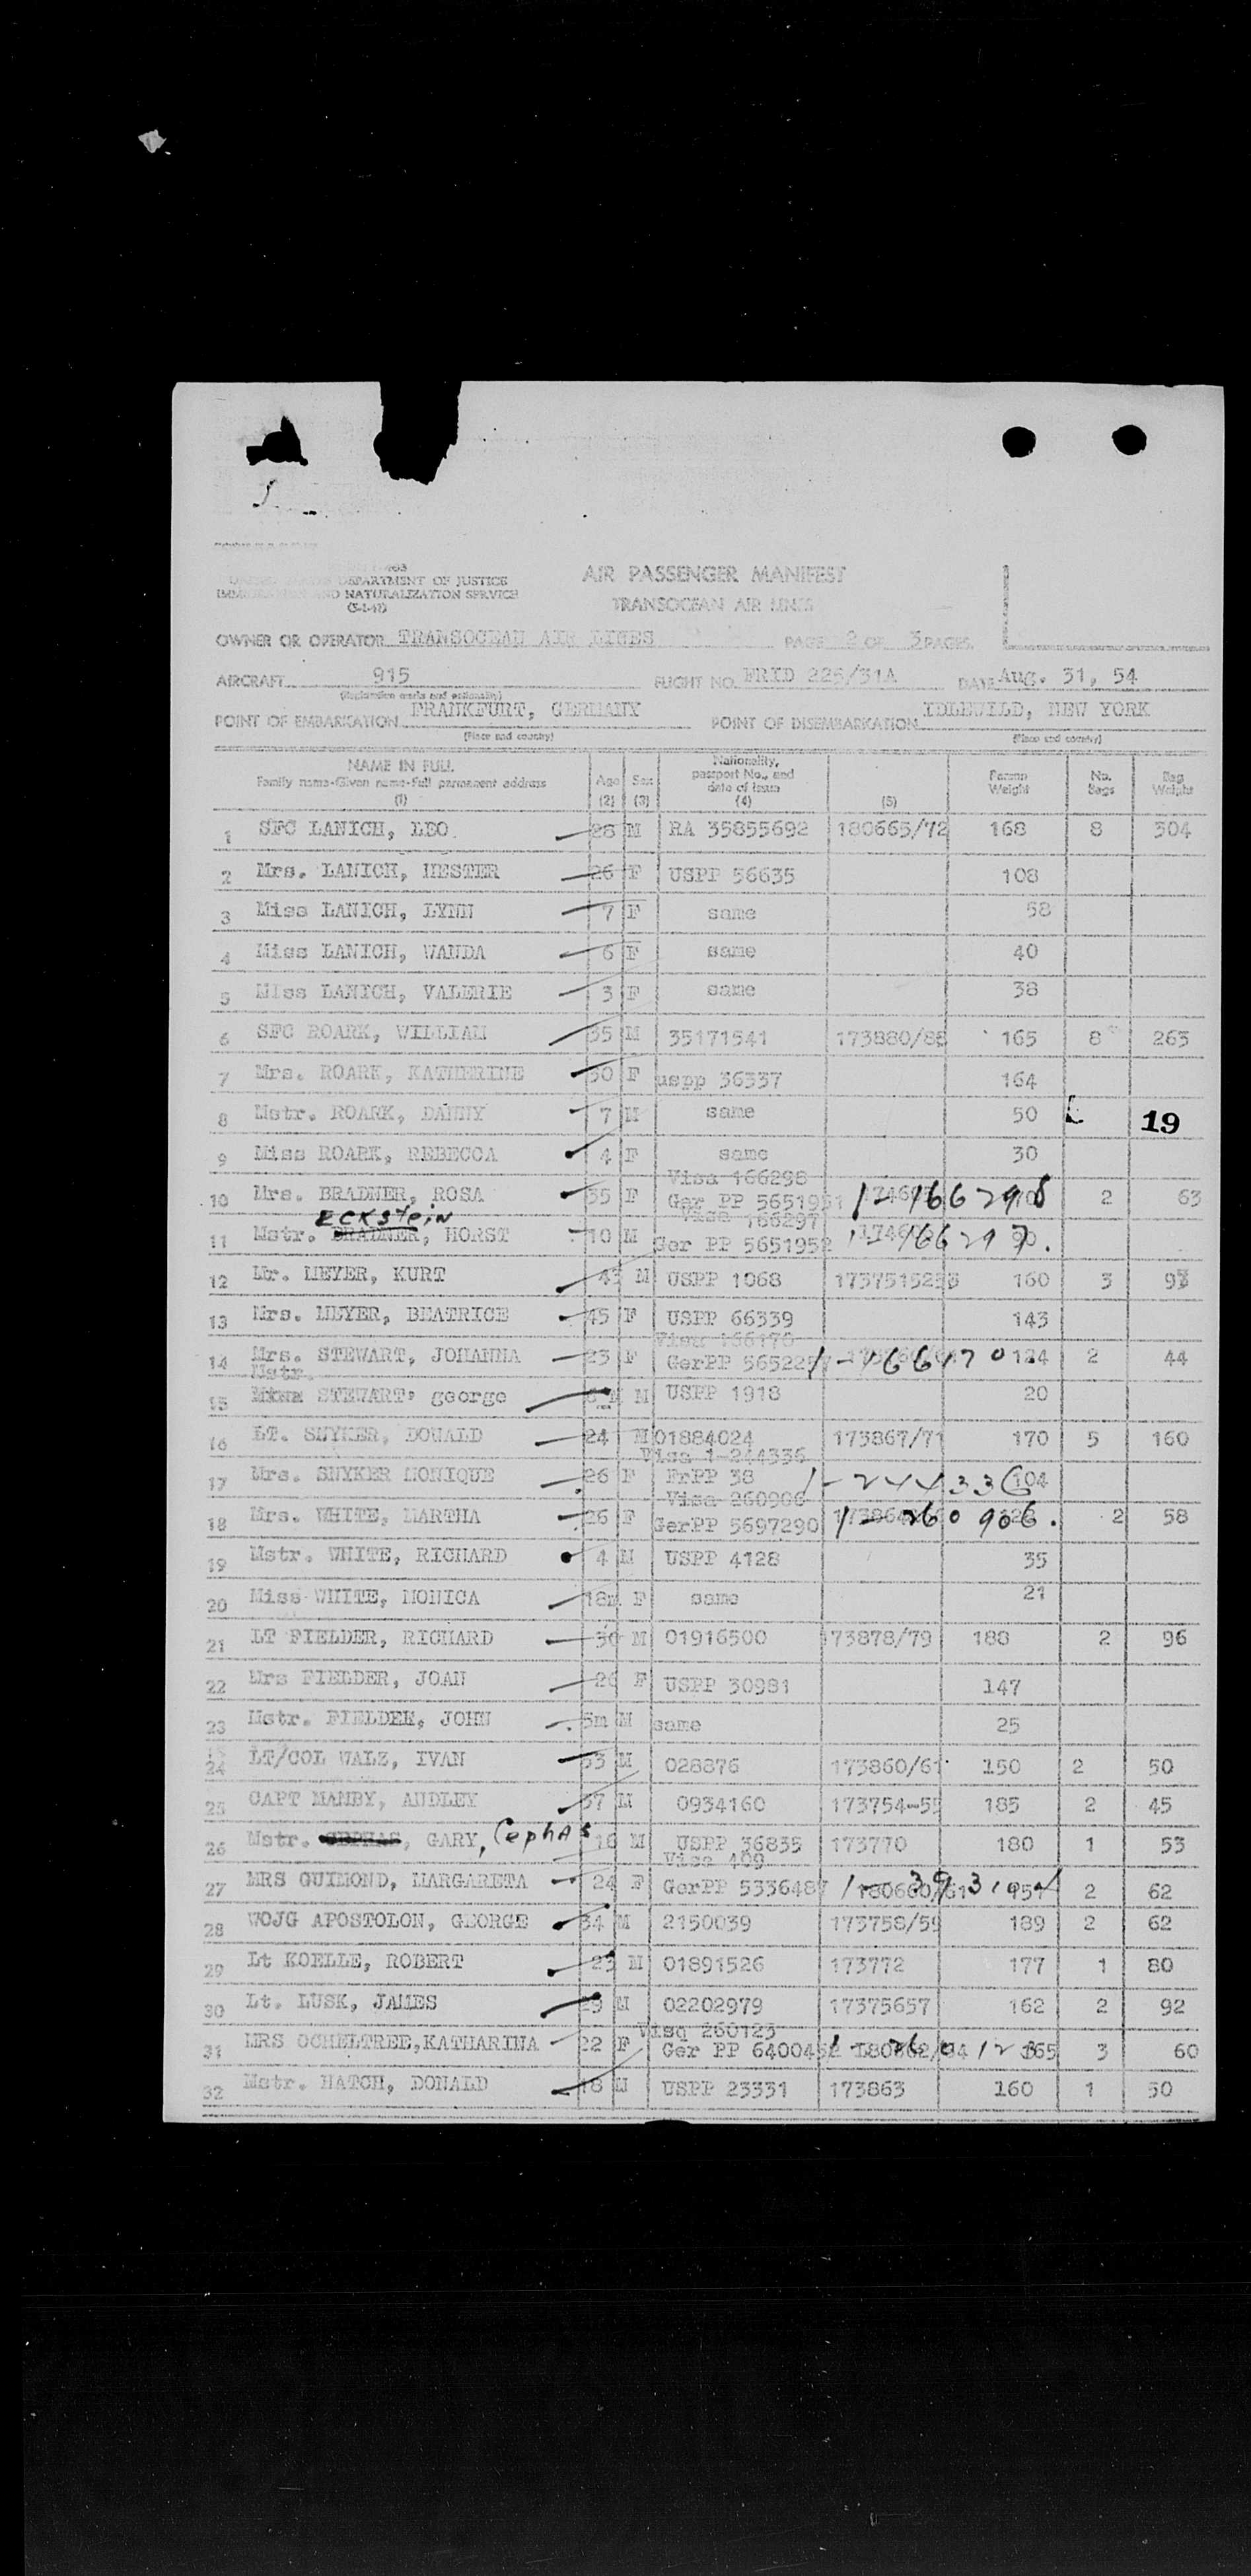 DEPARTMENT OF JUSTICE
AND NATURALIZATION SERVICE
AIR PASSENGER MANIFEST
TRANSOCEAN AIR LINES
OWNER OR OPERATOR TRANSOCEAN AIR LINES PAGE 2 OF 3 PAGES
AIRCRAFT 915 FLIGHT NO. FRID 225/31A DATE Aug. 31, 54
(Registration marks and nationality)
POINT OF EMBARKATION FRANKFURT, GERMANY POINT OF DISEMBARKATION IDLEWILD, NEW YORK
(Place and country) (Place and country)
NAME IN FULL Age Sex Nationality, passport No., and date of issue Weight No. Bags Bag Weight
Family name-Given name-Full permanent address
(1) (2) (3) (4) (5)
1 SFC LANICH, LEO 28 M RA 35855692 180665/72 168 8 304
2 Mrs. LANICH, HESTER 26 F USPP 56635 108
3 Miss LANICH, LYNN 7 F same 58
4 Miss LANICH, WANDA 6 F same 40
5 Miss LANICH, VALERIE 3 F same 38
6 SFC ROARK, WILLIAM 35 M 35171541 173880/88 165 8 263
7 Mrs. ROARK, KATHERINE 30 F uspp 36337 164
8 Mstr. ROARK, DANNY 7 M same 50
19
9 Miss ROARK, REBECCA 4 F same 30
Visa 166298
10 Mrs. BRADNER, ROSA 35 F Ger PP 5651951 1-166298 2 63
ECKStEiN Visa 166297
11 Mstr. BRADNER, HORST 10 M Ger PP 5651952 1-166297.
12 Mr. MEYER, KURT 45 M USPP 1068 160 3
13 Mrs. MEYER, BEATRICE 45 F USPP 66339 143
Visa 166170
14 Mrs. STEWART, JOHANNA 23 F GerPP 1-166170 124 2 44
Mstr.
15 STEWART, george M USPP 1918 20
16 LT. SNYKER, DONALD 24 M 01884024 173867/71 170 5 160
Visa 1-244336
17 Mrs. SNYKER MONIQUE 26 F FrPP 38 1-244336 104
Visa 260906
18 Mrs. WHITE, MARTHA 26 F GerPP 5697290 1-260906. 2 58
19 Mstr. WHITE, RICHARD 4 M USPP 4128 35
20 Miss WHITE, MONICA 18m F same 21
21 LT FIELDER, RICHARD 30 M 01916500 173878/79 188 2 96
22 Mrs FIELDER, JOAN 26 F USPP 30981 147
23 Mstr. FIELDER, JOHN 5m M same 25
24 LT/COL WALZ, IVAN 53 M 028876 173860/61 150 2 50
25 CAPT MANBY, AUDLEY 37 M 0934160 173754-55 185 2 45
26 Mstr. CEPHAS, GARY, CephAs 16 M USPP 36835 173770 180 1 53
Visa 409
27 MRS GUIMOND, MARGARETA 24 F GerPP 5336487 180660/61 151 2 62
28 WOJG APOSTOLON, GEORGE 34 M 2150039 173758/59 189 2 62
29 Lt KOELLE, ROBERT 23 M 01891526 173772 177 1 80
30 Lt. LUSK, JAMES 29 M 02202979 17375657 162 2 92
Visa 260123
31 MRS OCHELTREE, KATHARINA 22 F Ger PP 1-260123 165 3 60
32 Mstr. HATCH, DONALD 18 M USPP 23331 173863 160 1 50